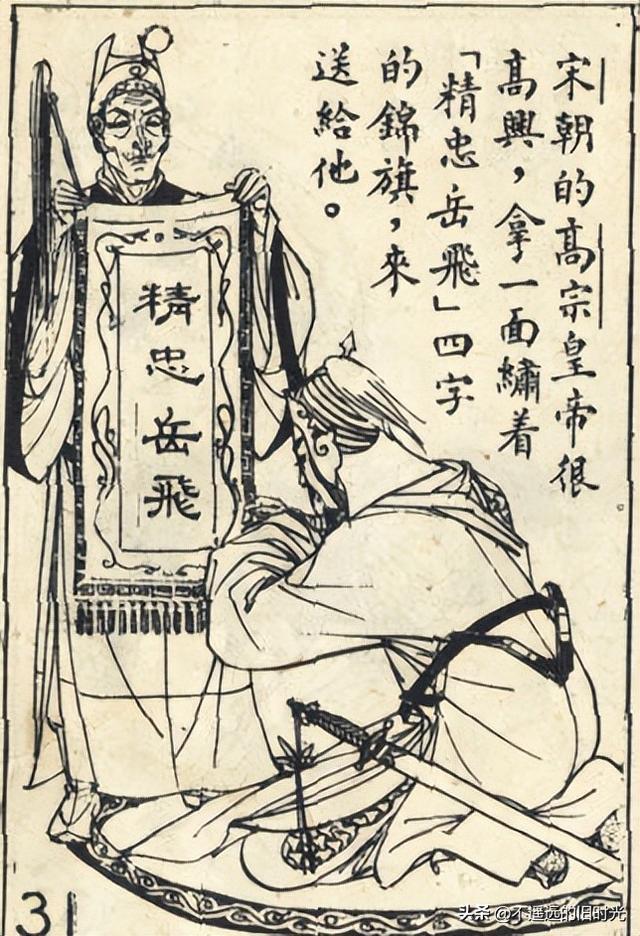 宋朝的高宗皇帝很
高興，拿一面繡着
「精忠岳飛」四字
的錦旗，來
送給他。
精忠岳飛
3
头条 @不遥远的旧时光